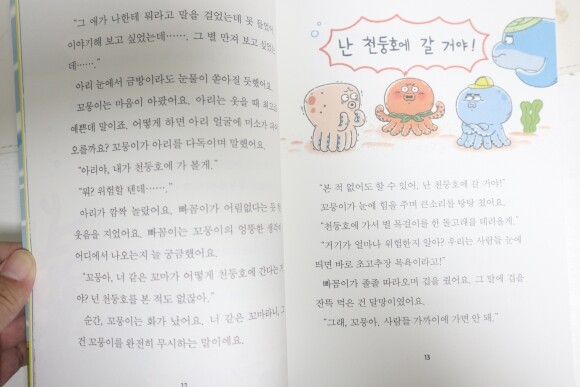 "그 애가 나한테 뭐라고 말을 걸었는데 못 들었어
이야기해 보고 싶었는데……. 그 별 만져 보고 싶었
는데……."
아리 눈에서 금방이라도 눈물이 쏟아질 듯했어요.
꼬뭉이는 마음이 아팠어요. 아리는 웃을 때 최고
예쁜데 말이죠. 어떻게 하면 아리 얼굴에 미소가
오를까요? 꼬뭉이가 아리를 다독이며 말했어요.
"아리야, 내가 천둥호에 가 볼게."
"뭐? 위험할 텐데……."
아리가 깜짝 놀랐어요. 빠꼼이가 어림없다는 듯
웃음을 지었어요. 빠꼼이는 꼬뭉이의 엉뚱한
어디에서 나오는지 늘 궁금했어요.
"꼬뭉아, 너 같은 꼬마가 어떻게 천둥호에 간다는
야? 넌 천둥호를 본 적도 없잖아."
순간, 꼬뭉이는 화가 났어요. 너 같은 꼬마라니,
건 꼬뭉이를 완전히 무시하는 말이에요.
12
난 천둥호에 갈 거야!
"본 적 없어도 할 수 있어. 난 천둥호에 갈 거야!"
꼬뭉이가 눈에 힘을 주며 큰소리를 탕탕 쳤어요.
"천둥호에 가서 별 목걸이를 한 돌고래를 데려올게."
"거기가 얼마나 위험한지 알아? 우리는 사람들 눈에
띄면 바로 초고추장 목욕이라고!"
빠꼼이가 졸졸 따라오며 겁을 줬어요. 그 말에 겁을
잔뜩 먹은 건 달망이였어요.
"그래, 꼬뭉아. 사람들 가까이에 가면 안 돼."
13